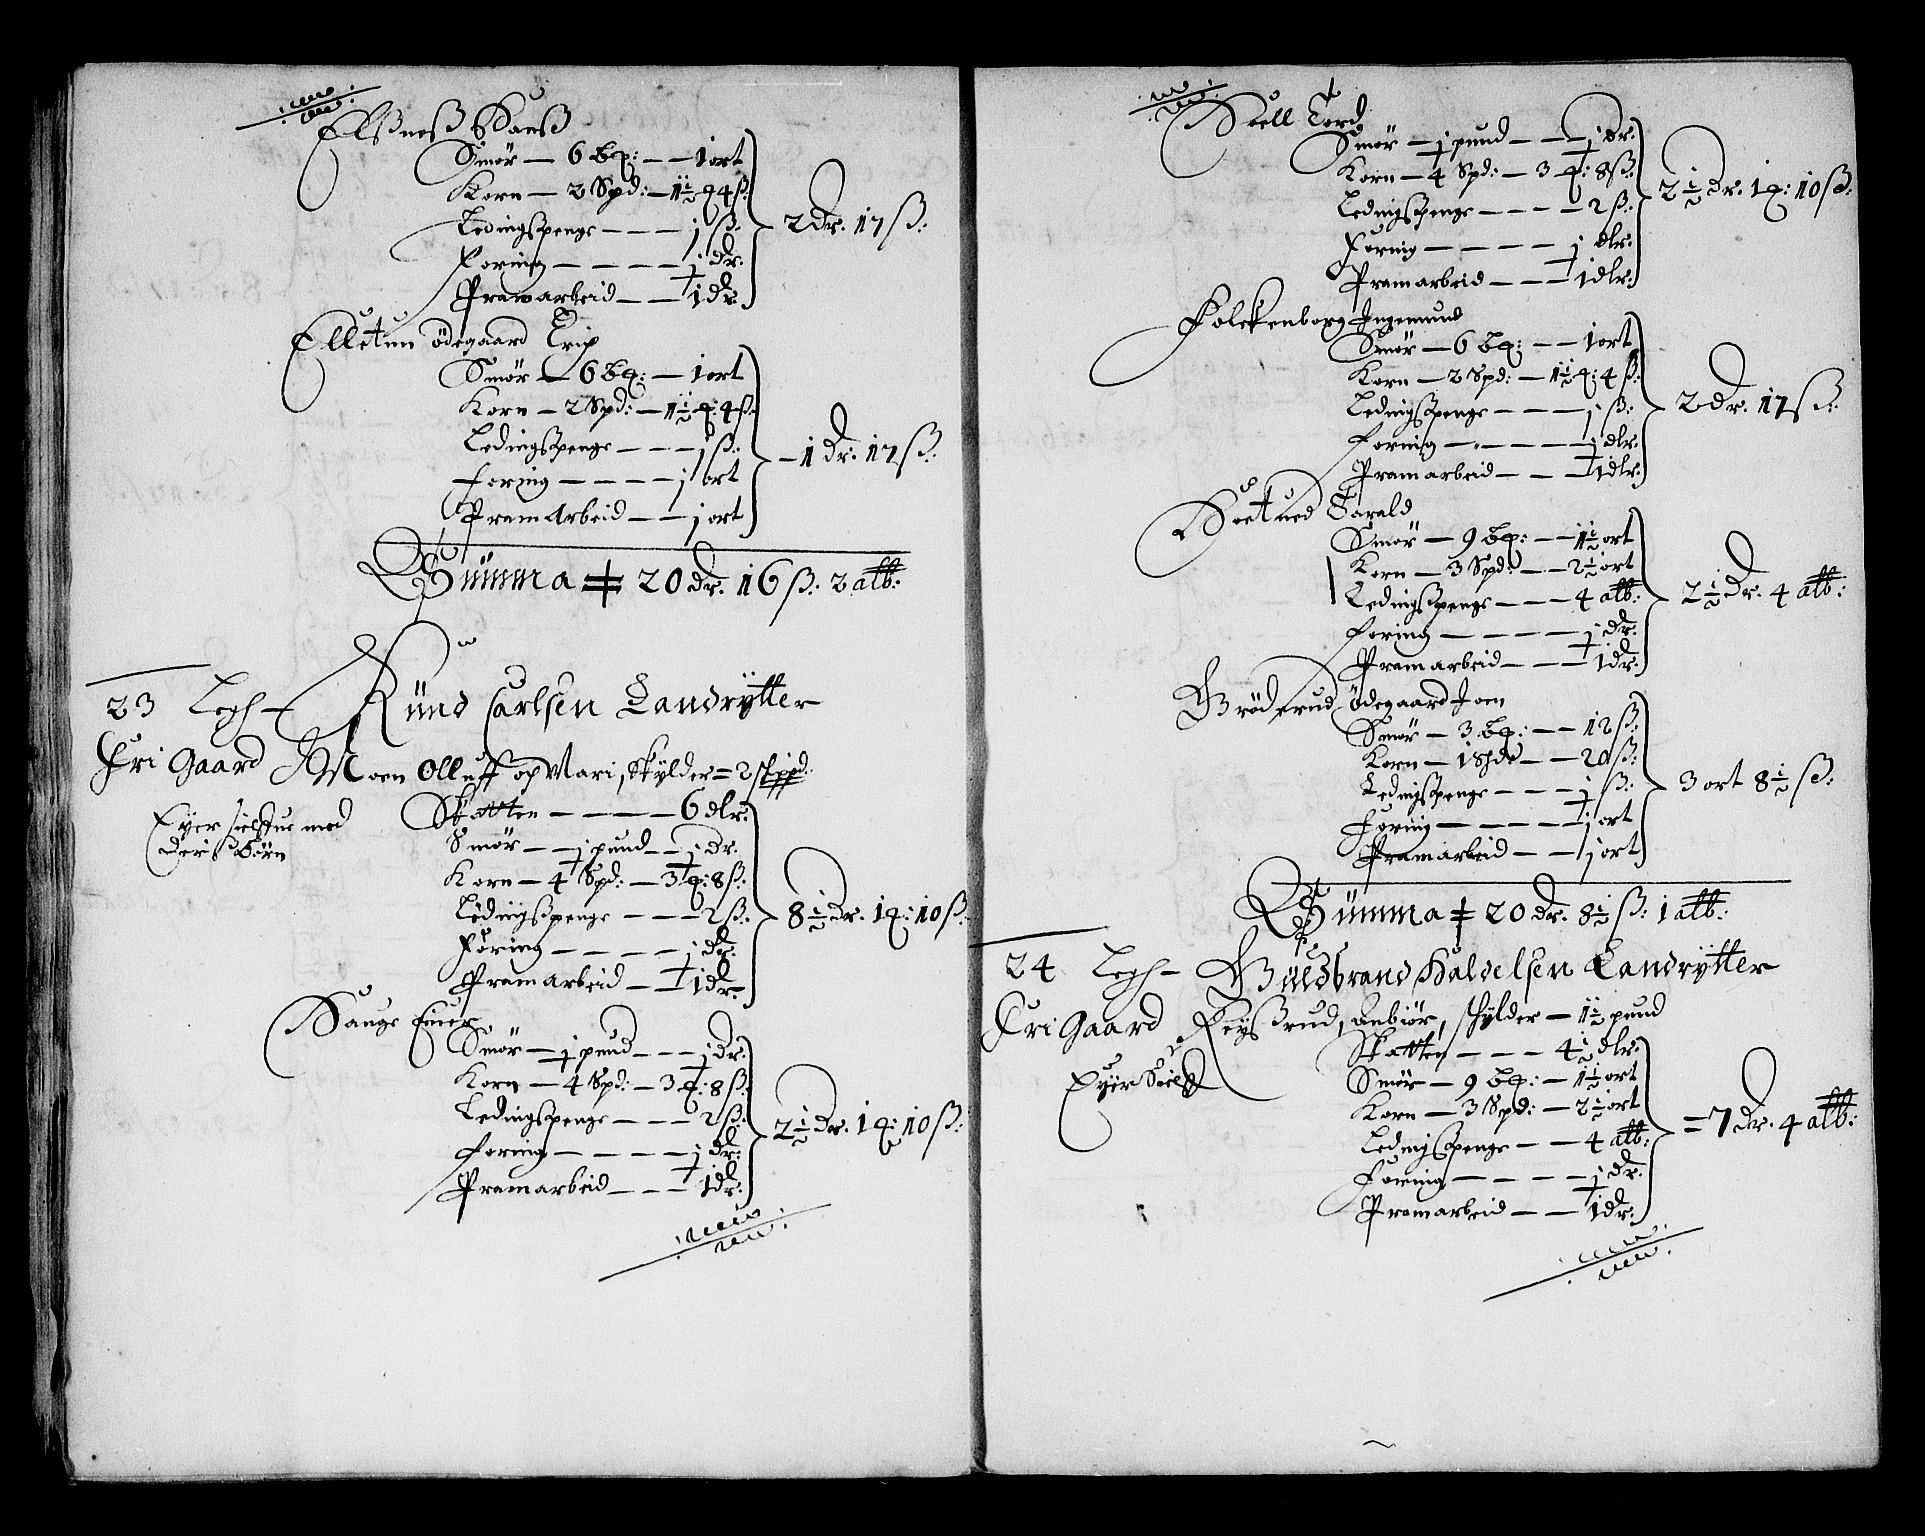 Elßneß Hanß
Smör — 6 bp: — — 1 ort
Korn — 2 Spd: — 1½ q 4 ß:
Ledingßpenge — — — j ß:
Foring — — — — j dr.
Pramarbeid — — 1 dr.
2 dr. 17 ß:
Elletun ödegaard
Smör — 6 bp: — 1 ort
Korn — 2 Spd: — 1½ q: 4 ß:
Ledingßpenge — — — j ß:
Foring — — — — j ort
PramArbeid — — j ort
— 1 dr: 17 ß:
Summa 20 dr. 16 ß: 2 alb:
23 Legh — Knud Carlsen Landrÿtter
Fri Gaard Moen Olluff op Mari, Skÿlder = 2 skppd:
Eyer sielffue med
Deris börn
Skatten — — — — 6 dlr:
Smör — — j pund — — j dr.
Korn — 4 Spd: — 3 q: 8 ß:
Lödingßpenge — — — 2 ß:
Föring — — — — — j dr.
Pramarbeid — — 1 dr.
8½ dr. 1 q: 10 ß:
Hauge Einer
Smör — j pund — — — j dr.
Korn — 4 Spd: — 3 q: 8 ß:
Ledingßpenge — — — 2 ß:
Foring — — — — — j dr:
Pramarbeid — — — 1 dr:
2½ dr. 1 q: 10 ß:
Tord
Smör — j pund — — — j dr.
Korn — 4 Spd: — 3 q: 8 ß:
Ledingßpenge — — — — 2 ß:
Foring — — — — — j dlr.
Pramarbeid — — — 1 dlr:
2½ dr. 1 q: 10 ß:
Folckenborg Ingemund
Smör — 6 bp: — — 1 ort
Korn — 2 Spd: — 1½ q: 4 ß:
Ledingßpenge — — — — j ß:
Foring — — — — — j dlr.
Pramarbeid — — — 1 dlr:
2 dr. 17 ß:
Harald
Smör — 9 bp: — — 1½ ort
Korn — 3 Spd: — — 2½ ort
Ledingßpenge — — — 4 alb:
Foring — — — — — j dr.
Pramarbeid — — — 1 dr:
2½ dr. 4 alb:
Gröderud Ödegaard Joen
Smör — 3 bp: — — 12 ß:
Korn — 1 Spd — — 20 ß:
Ledingßpenge — — — j ß:
Foring — — — — — j ort
Pramarbeid — — j ort
3 ort 8½ ß:
Summa 20 dr. 8½ ß: 1 alb:
24 Legh — Guldbrand Haldelsen Landrÿtter
Fri Gaard Reÿßrud, Anbiör, skÿlder — 1½ pund
Eyer Sielff
Skatten — — — 4½ dlr:
Smör — 9 bp: — 1½ ort
Korn — 3 Spd: — 2½ ort
Ledingßpenge — — 4 alb:
Foring — — — — — j dr.
Pramarbeid — — 1 dr:
= 7 dr. 4 alb: